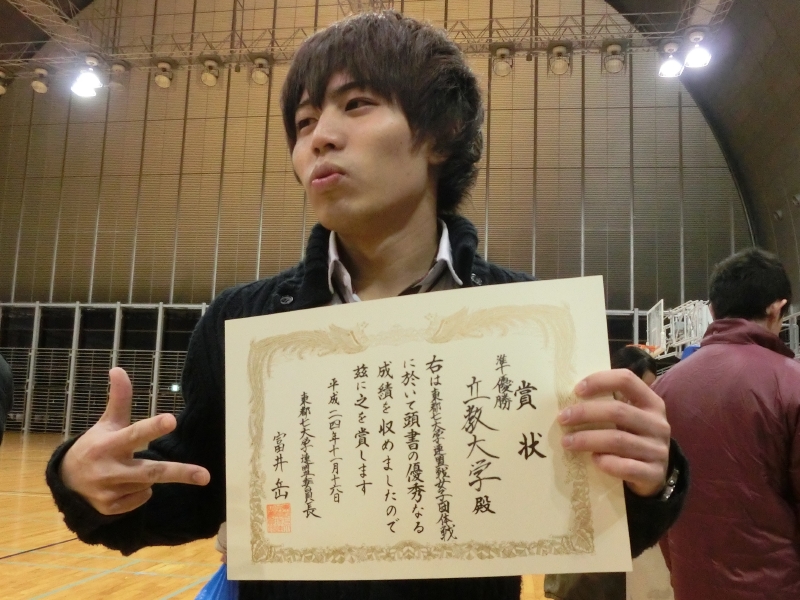 賞状
準優勝
立教大学 殿
右は東都七大学連盟戦女子団体戦
に於いて頭書の優秀なる
成績を収めましたので
玆に之を賞します
平成二四年十一月十六日
東都七大学連盟委員長
富井 岳